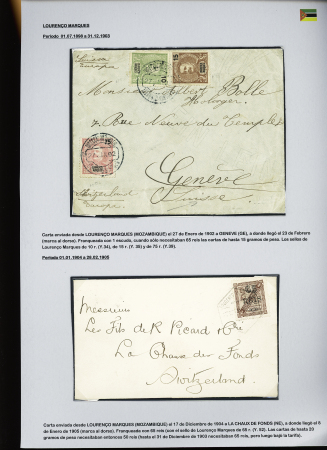 LOURENÇO MARQUES
Período 01.07.1899 a 31.12.1903
Suisse
Europa
Monsieur Albert Bolle
Horloger
7 Rue Neuve du Temple
Genève
Suisse
Switzerland
Europa
Carta enviada desde LOURENÇO MARQUES (MOZAMBIQUE) el 27 de Enero de 1902 a GENEVE (GE), a donde llegó el 23 de Febrero
(marca al dorso). Franqueada con 1 escudo, cuando sólo necesitaban 65 reis las cartas de hasta 15 gramos de peso. Los sellos de
Lourenço Marques de 10 r. (Y. 34), de 15 r. (Y. 35) y de 75 r. (Y. 39).
Período 01.01.1904 a 28.02.1905
Messieurs
Les Fils de R Picard & Cie
La Chaux de Fonds
Switzerland.
Carta enviada desde LOURENÇO MARQUES (MOZAMBIQUE) el 17 de Diciembre de 1904 a LA CHAUX DE FONDS (NE), a donde llegó el 8
de Enero de 1905 (marca al dorso). Franqueada con 65 reis (con el sello de Lourenço Marques de 65 r. (Y. 52). Las cartas de hasta 20
gramos de peso necesitaban entonces 50 reis (hasta el 31 de Diciembre de 1903 necesitaban 65 reis, pero luego bajó la tarifa).